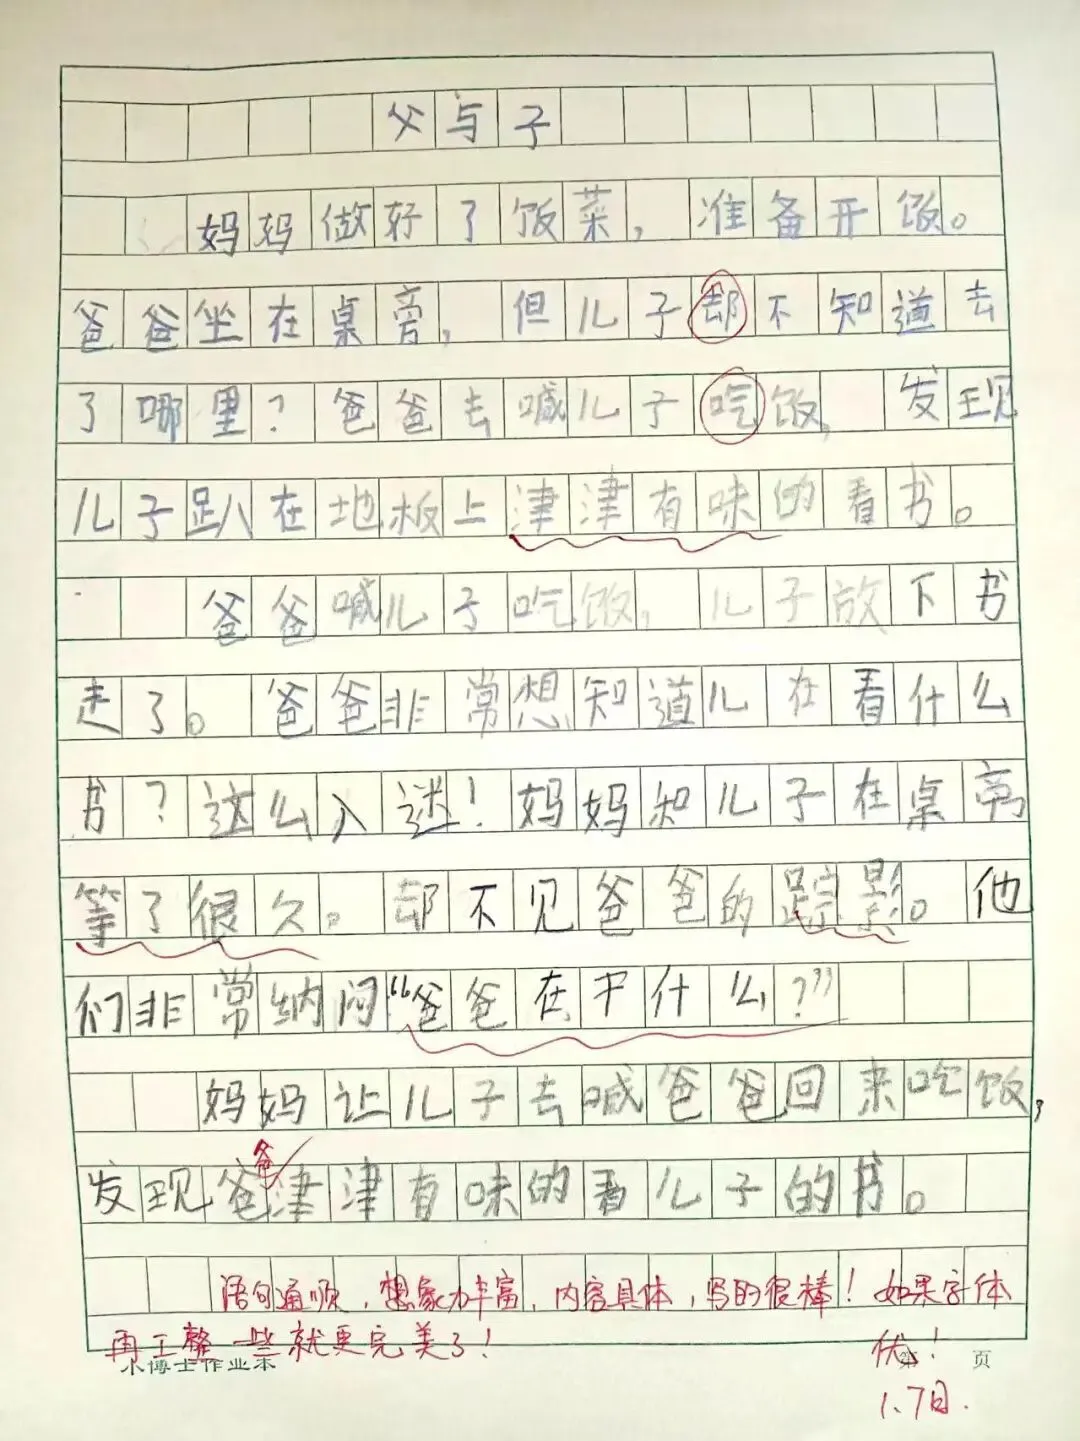 父与子
妈妈做好了饭菜，准备开饭。
爸爸坐在桌旁，但儿子却不知道去
了哪里？爸爸去喊儿子吃饭，发现
儿子趴在地板上津津有味的看书。
爸爸喊儿子吃饭，儿子放下书
走了。爸爸非常想知道儿在看什么
书？这么入迷！妈妈和儿子在桌旁
等了很久。却不见爸爸的踪影。他
们非常纳闷“爸爸在干什么？”
妈妈让儿子去喊爸爸回来吃饭，
爸
发现爸津津有味的看儿子的书。
语句通顺，想象力丰富，内容具体，写的很棒！如果字体
再工整一些就更完美了！
优！
小博士作业本 第 页
1.7日.